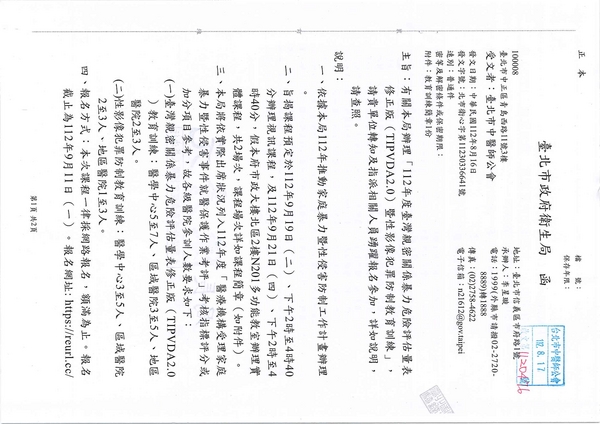 正本
檔　號：
保存年限：
臺北市政府衛生局　函
地址：臺北市信義區市府路1號
承辦人：李星璇
電話：1999(外縣市請撥02-2720-8889)轉1888
傳真：(02)2758-4622
電子信箱：n21612@gov.taipei
台北市中醫師公會
112.8.17
100008
臺北市中正區青島西路11號3樓
受文者：臺北市中醫師公會
發文日期：中華民國112年8月16日
發文字號：北市衛心字第1123033641號
速別：普通件
密等及解密條件或保密期限：
附件：教育訓練簡章1份
主旨：有關本局辦理「112年度臺灣親密關係暴力危險評估量表
修正版（TIPVDA2.0）暨性影像犯罪防制教育訓練」，
請貴單位轉知及指派相關人員踴躍報名參加，詳如說明，
請查照。
說明：
一、依據本局112年推動家庭暴力暨性侵害防制工作計畫辦理
二、旨揭課程預定於112年9月19日（二）、下午2時至4時40
分辦理視訊課程，及112年9月21日（四）、下午2時至4
時40分，假本府市政大樓北區2樓N201多功能教室辦理實
體課程，共2場次，課程場次詳如課程簡章（如附件）。
三、本局將依實際出席狀況列入112年度「醫療機構受理家庭
暴力暨性侵害事件就醫保護作業考評」考核指標評分或
加分項目參考，故各級醫院參訓人數要求如下：
(一)臺灣親密關係暴力危險評估量表修正版（TIPVDA2.0
）教育訓練：醫學中心5至7人、區域醫院3至5人、地區
醫院2至3人。
(二)性影像犯罪防制教育訓練：醫學中心3至5人、區域醫院
2至3人、地區醫院1至3人。
四、報名方式：本次課程一律採網路報名，額滿為止。報名
截止為112年9月11日（一）。報名網址：https://reurl.cc/
第1頁 共2頁